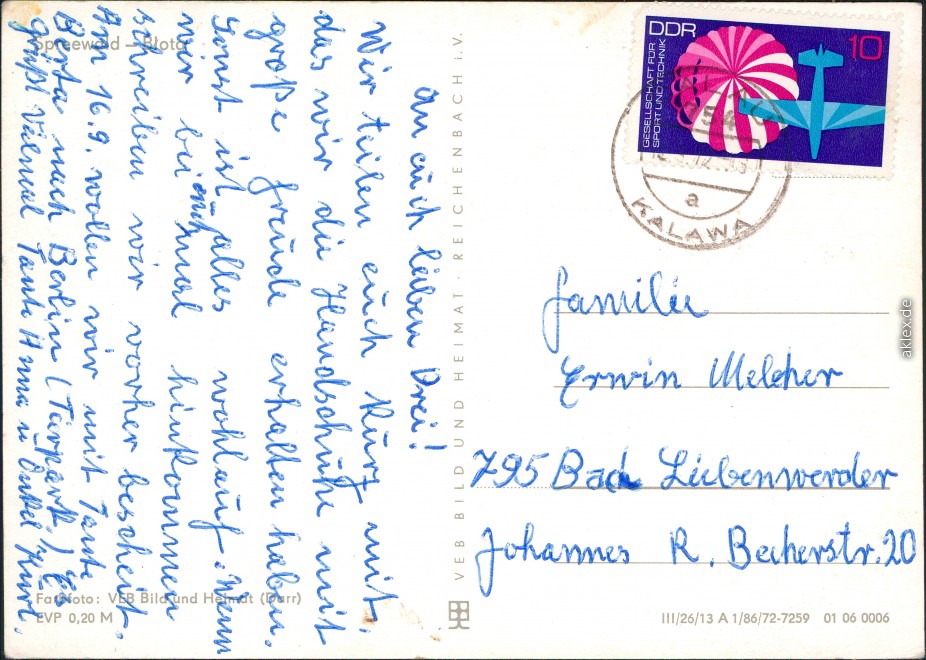 Spreewald – Blota
An euch lieben Drei!
Wir teilen euch kurz mit,
das wir die Handschuhe mit
große freude erhalten haben.
Sonst ist alles wohlauf. Wenn
wir bei euch mal hinkommen
schreiben wir vorher bescheit.
Am 16.9. wollen wir mit Tante
Berta nach Berlin (Tierpark.) Es
grüßt vielmal Tante Anna u Onkel Kurt.
Farbfoto: VEB Bild und Heimat (Darr)
EVP 0,20 M
VEB BILD UND HEIMAT · REICHENBACH i. V.
DDR 10
GESELLSCHAFT FÜR
SPORT UND TECHNIK
a
KALAWA
familie
Erwin Melcher
795 Bad Liebenwerder
Johannes R. Becherstr. 20
III/26/13 A 1/86/72-7259 01 06 0006
aklex.de